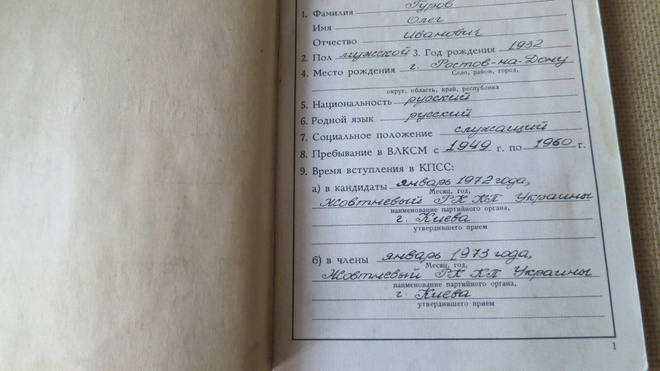 1. Фамилия Гуров
Имя Олег
Отчество Иванович
2. Пол мужской 3. Год рождения 1932
4. Место рождения г. Ростов-на-Дону
Село, район, город,
округ, область, край, республика
5. Национальность русский
6. Родной язык русский
7. Социальное положение служащий
8. Пребывание в ВЛКСМ с 1949 г. по 1960 г.
9. Время вступления в КПСС:
а) в кандидаты январь 1972 года,
Месяц, год,
Жовтневый РК КП Украины
наименование партийного органа,
г. Киева
утвердившего прием
б) в члены январь 1973 года,
Месяц, год,
Жовтневый РК КП Украины
наименование партийного органа,
г. Киева
утвердившего прием
1